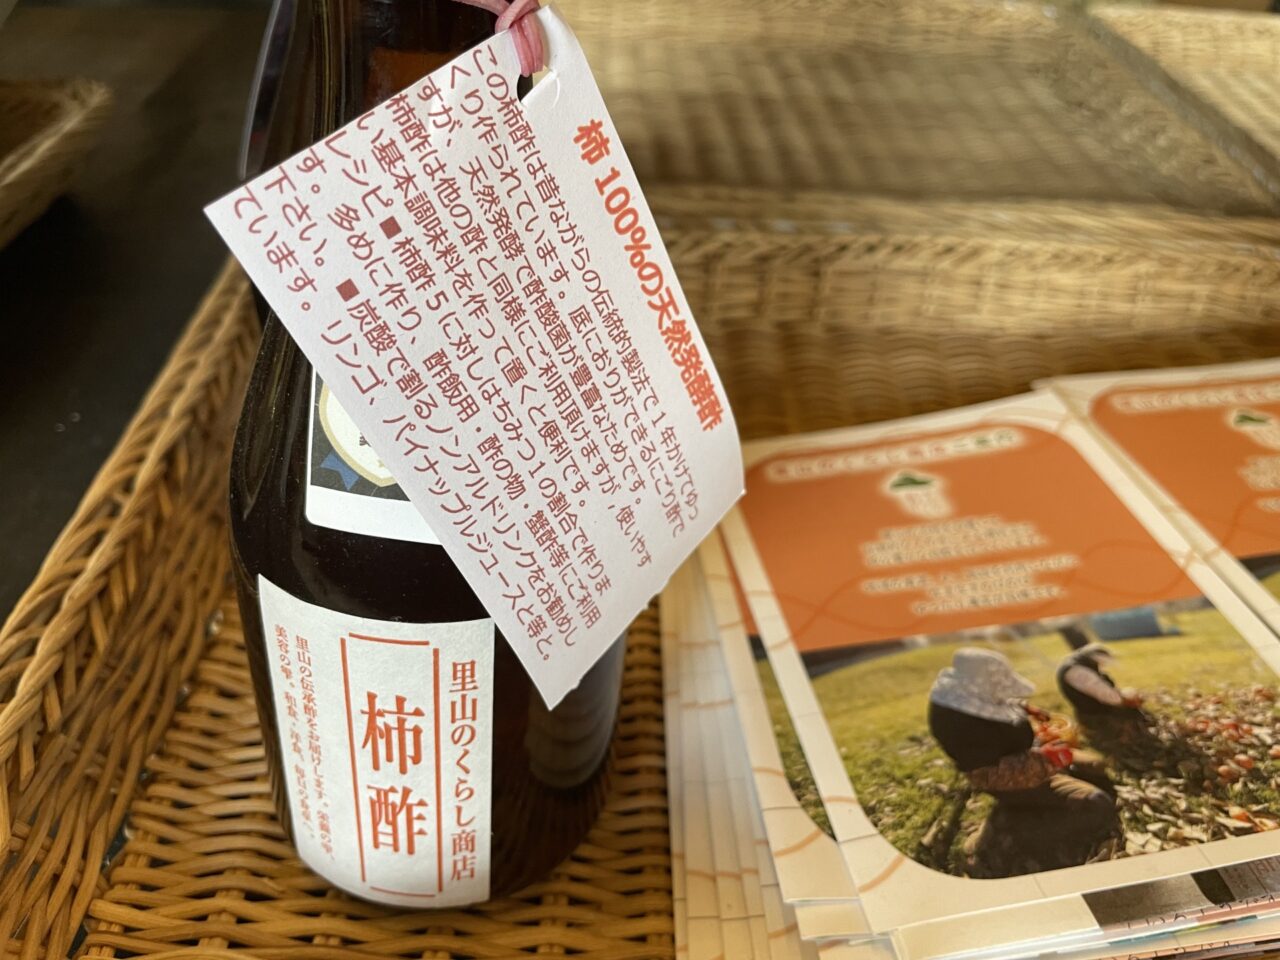 柿100%の天然発酵酢
この柿酢は昔ながらの伝統的製法で1年かけてゆっ
くり作られています。底におりができるにごり酢で
すが、天然発酵で酢酸菌が豊富なためです。
柿酢は他の酢と同様にご利用頂けますが、使いやす
い基本調味料を作って置くと便利です。
レシピ■柿酢5に対しはちみつ1の割合で作りま
す。多めに作り、酢飯用・酢の物・鰹酢等にご利用
下さい。■炭酸で割るノンアルドリンクをお勧めし
ています。リンゴ、パイナップルジュースと等と。
里山のくらし商店
柿酢
里山の伝承酢をお届けします。栄養の雫、
美容の雫。和食、洋食、毎日の食卓へ。